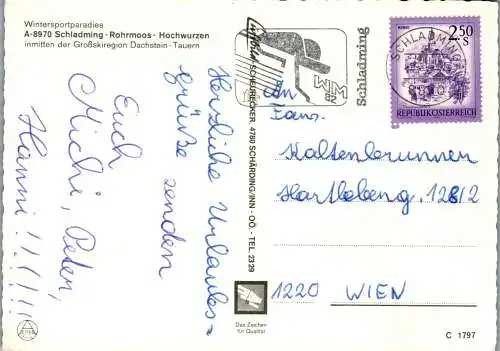 Wintersportparadies
A-8970 Schladming - Rohrmoos - Hochwurzen
inmitten der Großskiregion Dachstein - Tauern
Herzliche Urlaubs=
grüße senden
Euch
Michi, Peter,
Hanni!!!!!!!
SCHÄRDING/INN - OÖ. - TEL 2329
4780
Das Zeichen
für Qualität
WM
82
Schladming
SCHLADMING
2.50
S
REPUBLIK ÖSTERREICH
An
Fam.
Kaltenbrunner
Hartlebeng. 1
1220 WIEN
C 1797